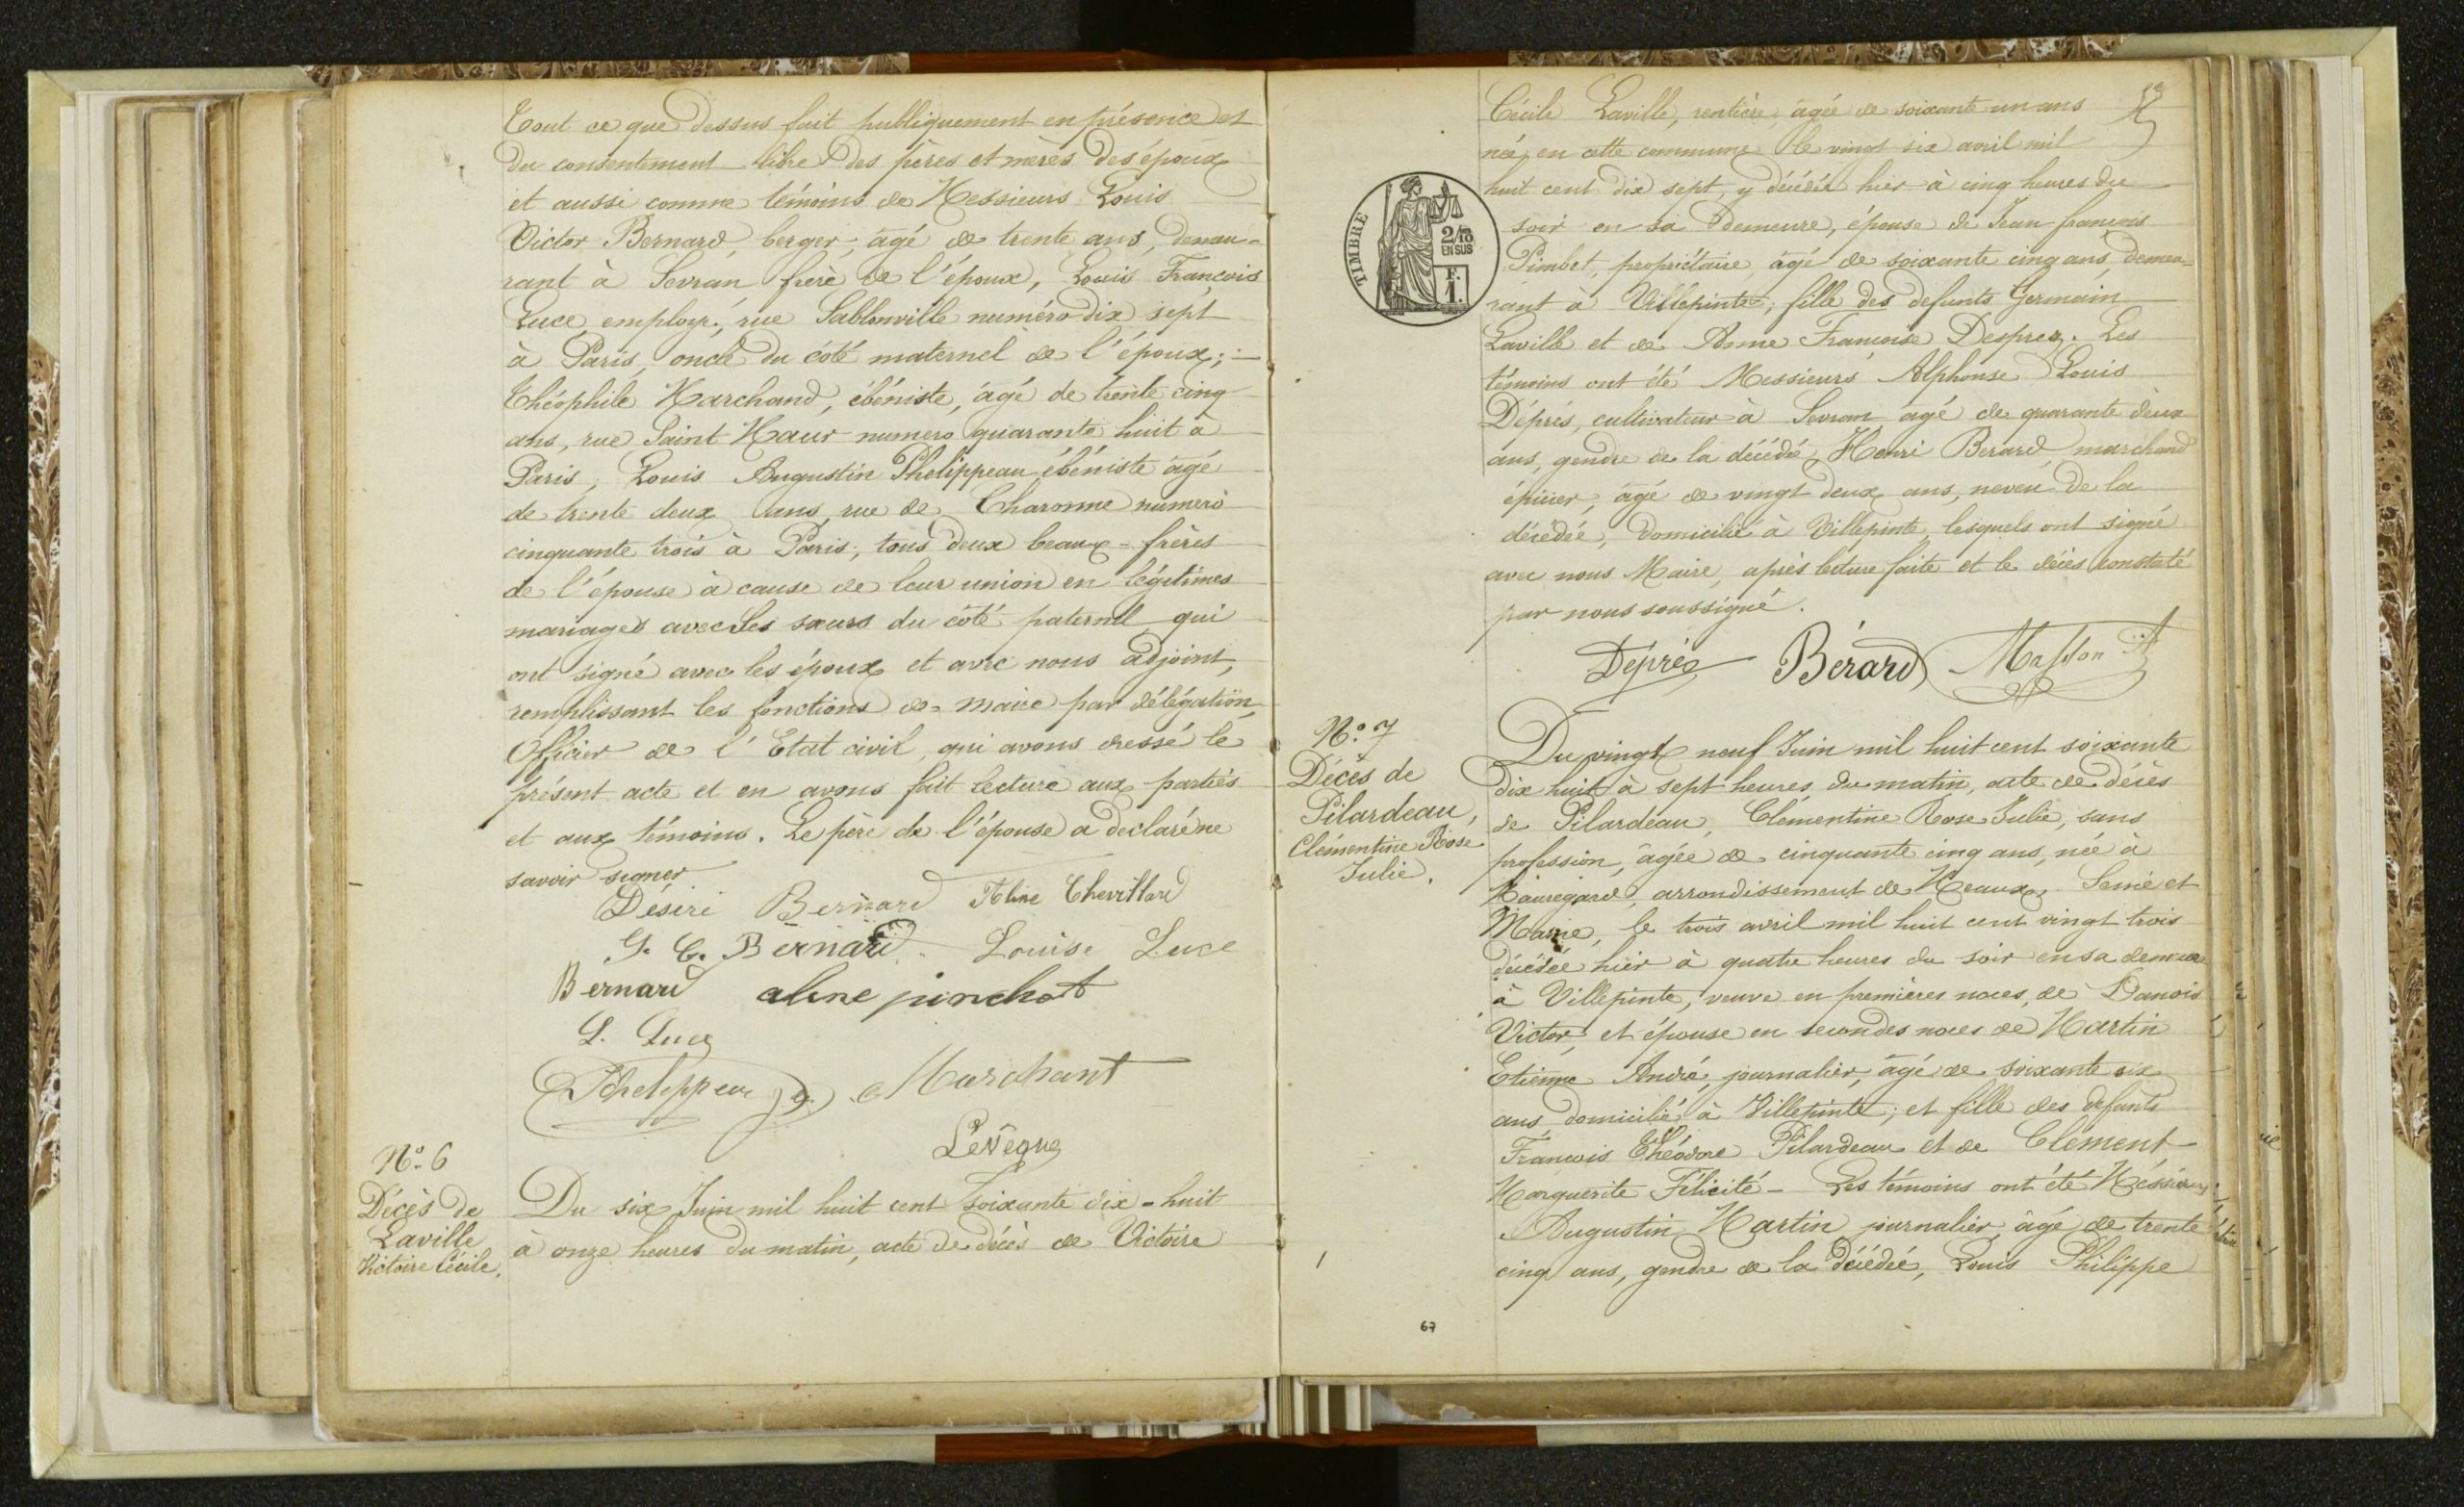 Tout ce que dessus fait publiquement en présence et
du consentement libre des pères et mères des époux
et aussi comme témoins de Messieurs Louis
Victor Bernard, berger, âgé de trente ans, demeu-
rant à Sevran frère de l'époux, Louis François
Luce employé, rue Sablonville numéro dix sept
à Paris, oncle du côté maternel de l'époux;
Théophile Marchand, ébéniste, âgé de trente cinq
ans, rue Saint Maur numero quarante huit à
Paris, Louis Augustin Phelippeau ébéniste âgé
de trente deux ans rue de Charonne numero
cinquante trois à Paris, tous deux beaux-frères
de l'épouse à cause de leur union en légitimes
mariages avec les sœurs du côté paternel qui
ont signé avec les époux et avec nous adjoint,
remplissant les fonctions de maire par délégation,
Officier de l'Etat civil, qui avons dressé le
présent acte et en avons fait lecture aux parties
et aux témoins. Le père de l'épouse a declaré ne
savoir signer
Désiré Bernard Chevillard
G. C. Bernard Louise Luce
Bernard aline pinchot
L. Luce
Phelippeau Marchant
Levêque
Nº 6
Décès de
Laville
Victoire Cécile.
Du six Juin mil huit cent soixante dix-huit
à onze heures du matin, acte de décès de Victoire
Cécile Laville, rentière, âgée de soixante un ans
née en cette commune le vingt six avril mil
huit cent dix sept, y décédée hier à cinq heures du
soir en sa demeure, épouse de Jean françois
Pimbet, propriétaire, âgé de soixante cinq ans, demeu-
rant à Villepinte, fille des defunts Germain
Laville et de Anne Françoise Desprez. Les
témoins ont été Messieurs Alphonse Louis
Déprés, cultivateur à Sevran âgé de quarante deux
ans, gendre de la décédée, Henri Berard, marchand
épicier, âgé de vingt deux ans, neveu de la
décédée, domicilié à Villepinte, lesquels ont signé
avec nous Maire, après lecture faite et le décès constaté
par nous soussigné.
TIMBRE
2/10
EN SUS
F.
1.
Déprés Bérard Masson
Nº 7
Décès de
Pilardeau,
Clémentine Rose
Julie.
Du vingt neuf Juin mil huit cent soixante
dix huit à sept heures du matin, acte de décès
de Pilardeau, Clémentine Rose Julie, sans
profession, âgée de cinquante cinq ans, née à
Mauregard, arrondissement de Meaux, Seine et
Marne, le trois avril mil huit cent vingt trois
décédée hier à quatre heures du soir en sa demeure
à Villepinte, veuve en premières noces, de Danois
Victor, et épouse en secondes noces de Martin
Etienne André, journalier, âgé de soixante six
ans domicilié à Villepinte; et fille des defunts
François Théodore Pilardeau et de Clément
Marguerite Félicité - Les témoins ont été Messieurs
Augustin Martin journalier, âgé de trente
cinq ans, gendre de la décédée, Louis Philippe
67